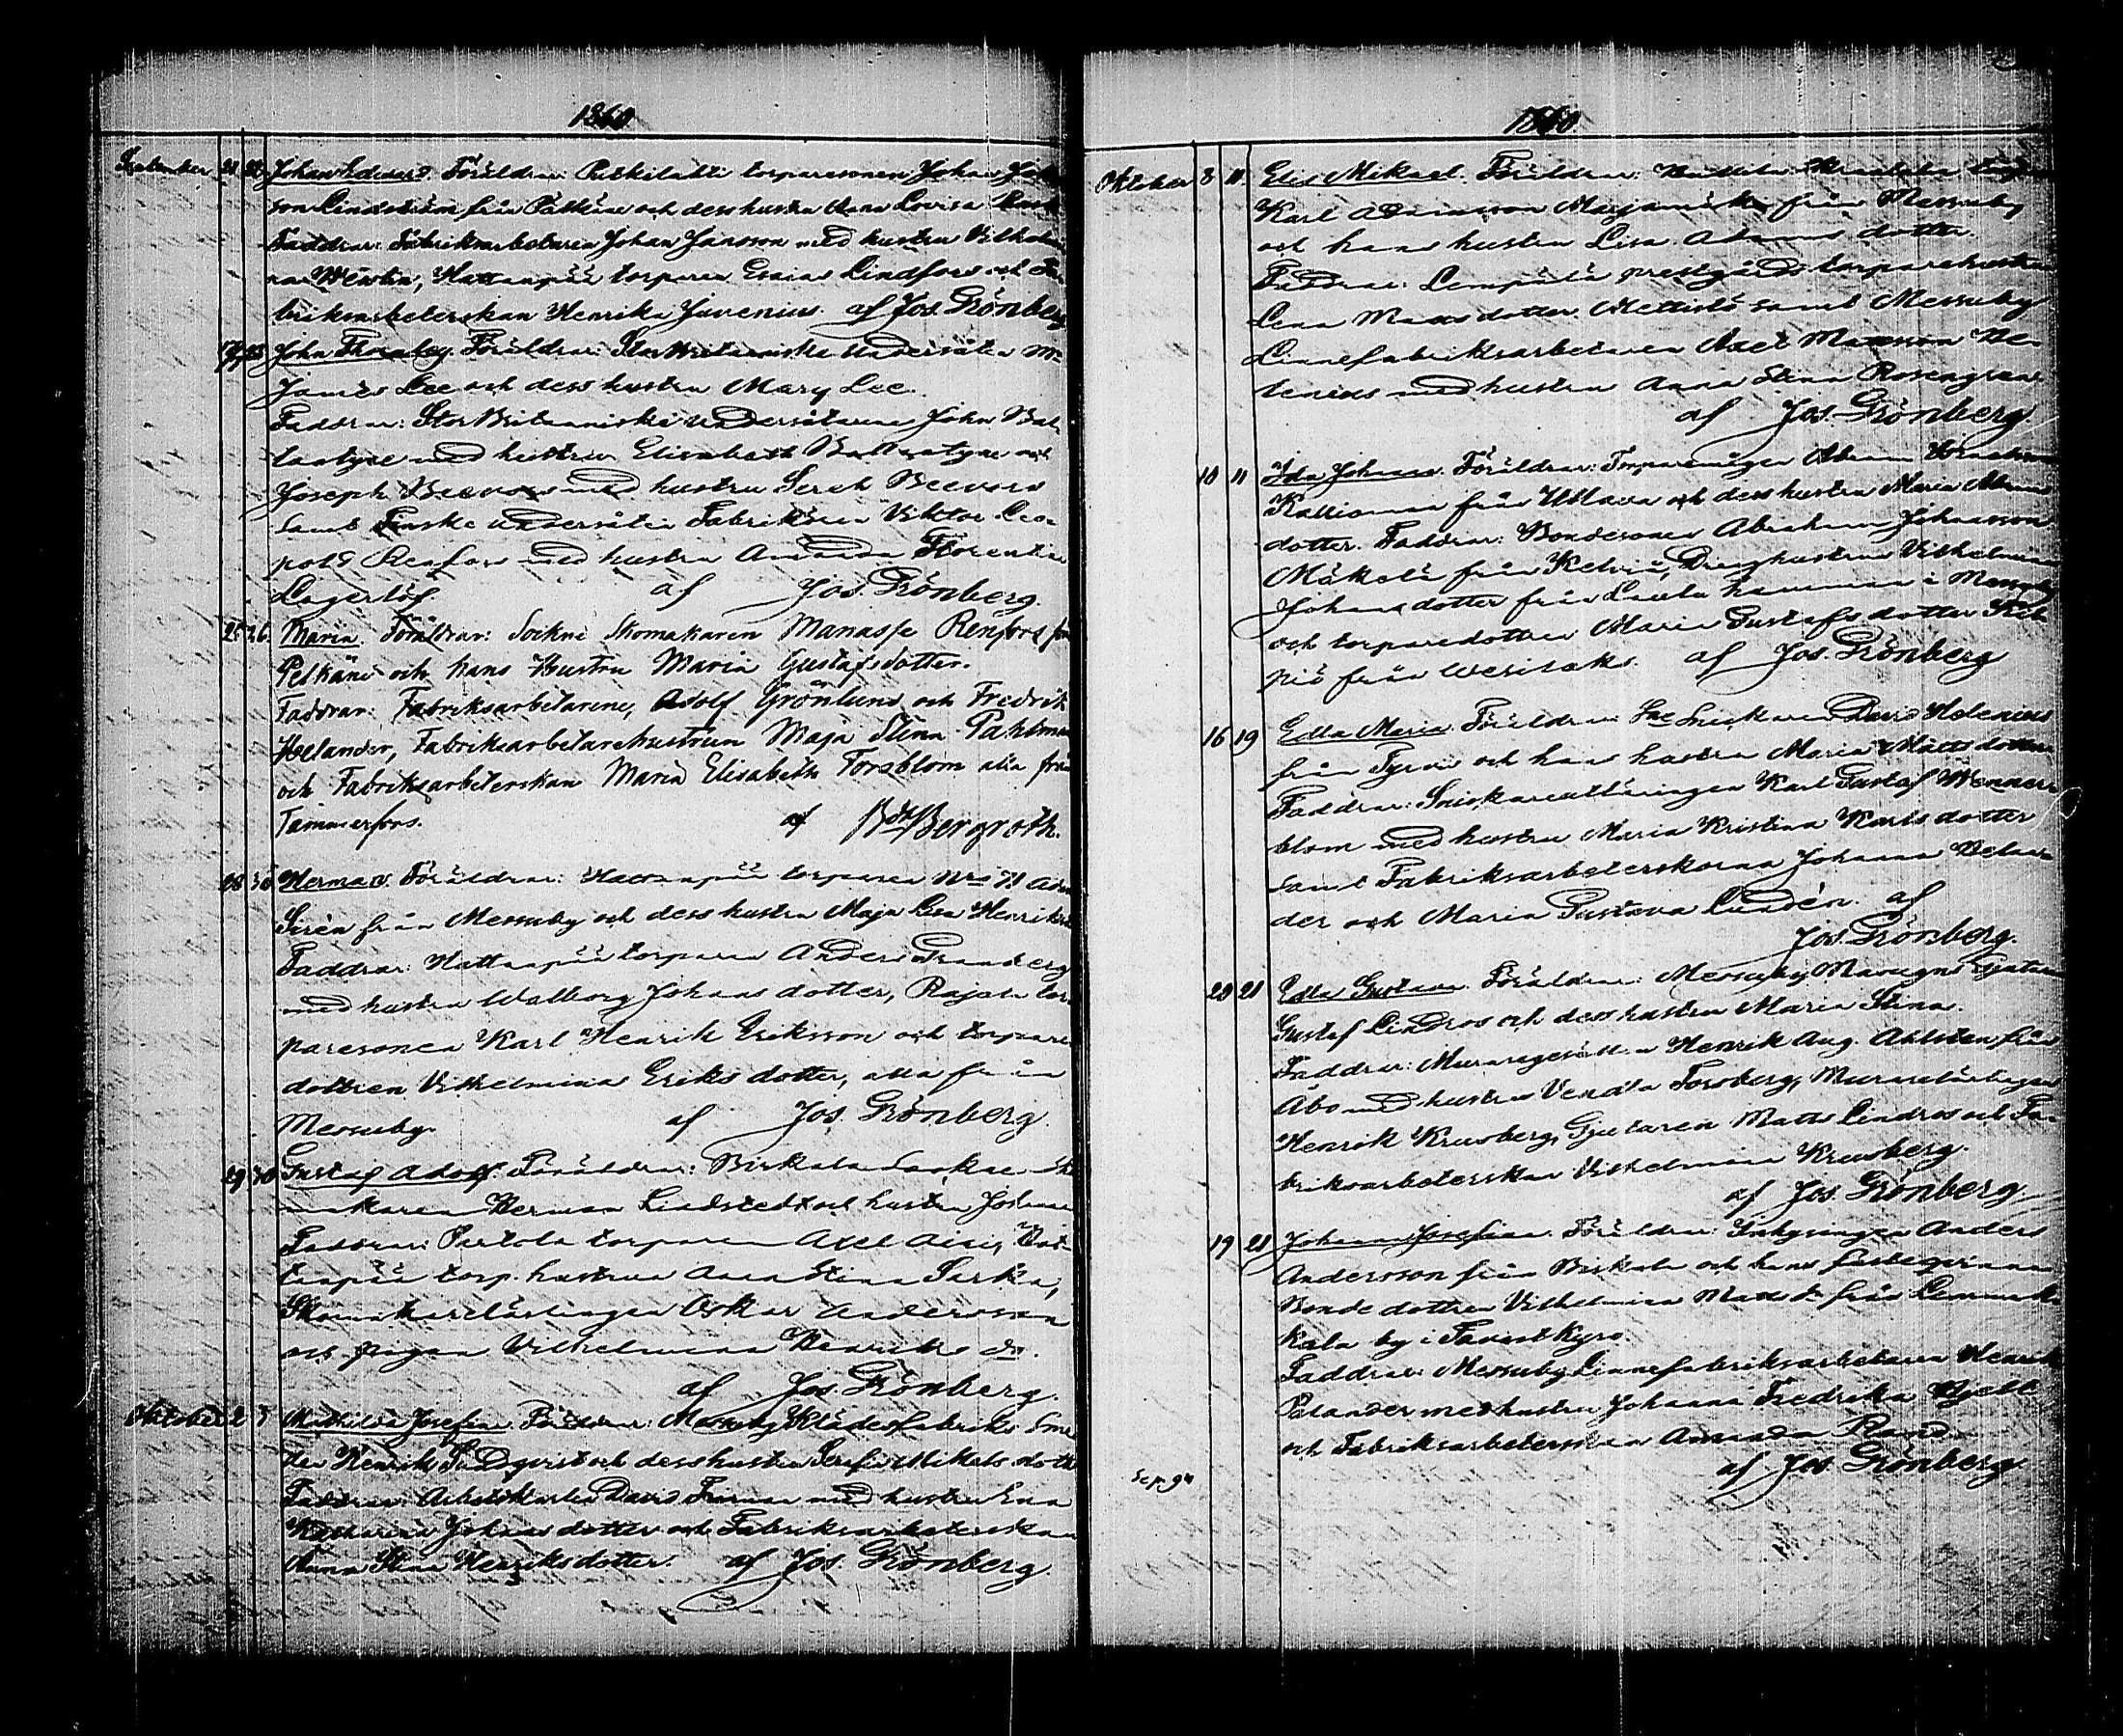 1860
September 21 22 Johan Edvard. Föräldrar: torparesonen Johan
son Lindström från Pälkäne och dess hustru Anna Lovisa
Faddrar: Fabriksarbetaren Johan Jansson med hustru Vilhelmi
na Wèstèn, Hattanpää torparen Esaias Lindfors och Fa
briksarbeterskan Henrika Juvenius. af Jos. Grönberg
John Thornley. Föräldrar: Stor Britanniske Undersåten Mr
James Lee och dess hustru Mary Lee.
Faddrar: Stor Britanniske Undersåtarene John Bal-
lantyne med hustru Elisabeth Ballantyne och
Joseph Beevors med hustru Sarah Beevors
samt Finske undersåten Fabrikören Viktor Leo-
pold Renfors med hustru Amanda Florentin
Lagerlöf af Jos. Grönberg.
25 26. Maria. Föräldrar: Sockne Skomakaren Manasse Renfors från
Pelkäne och hans Hustru Maria Gustafsdotter.
Faddrar: Fabriksarbetarene, Adolf Grönlund och Fredrik
Helander, Fabriksarbetarehustrun Maja Stina Pahlman
och Fabriksarbeterskan Maria Elisabeth Forsblom alla från
Tammerfors. af Bergroth.
28 30 Herman. Föräldrar: Hattanpää torparen Nro 71 Adam
Sirèn från Messuby och dess hustru Maja Lisa Henriksd
Faddrar: Hattanpää torparen Anders Granberg
med hustru Walborg Johansdotter, Rajala tor-
paresonen Karl Henrik Eriksson och torpare
dottren Vilhelmina Eriksdotter, alla från
Messuby. af Jos. Grönberg.
29 30 Gustaf Adolf. Föräldrar: Birkala Sockne Sko
makaren Herman Lindstedt och hustru Johanna
Faddrar: Pertola torparen Axel Hat-
tanpää torp. hustrun Anna Stina Sarka,
Skomakarelärlingen Oskar Andersson
och pigan Vilhelmina Henriks dr.
af Jos. Grönberg.
Oktober 2 3 Mathilda Josefina. Föräldrar: Messuby Klädesfabriks Sme
den Henrik Sundqvist och dess hustru Serafia Mikelsdott
Faddrar: Arbetskarlen David Friman med hustru Eva
Katharina Johansdotter och Fabriksarbeterskan
Anna Stina Henriksdotter. af Jos. Grönberg
1860
Oktober 8 11. Elis Mikael. Föräldrar:
Karl Adamsson Marjamäki från Messuby
och hans hustru Lisa Adamsdotter.
Faddrar: Lempälä prestgårds torparehustrun
Lena Mattsdotter Mettistö samt Messuby
Linnefabriksarbetaren Axel Mattsson He-
lenius med hustru Anna Stina Rosengren
af Jos. Grönberg
10 11 Ida Johanna. Föräldrar: Torparemågen Abram
Kallioman från Ullava och dess hustru Maria
dotter. Faddrar: Bondesonen Abraham Johansson
Mäkelä från Kelviå, Drenghustrun Vilhelmina
Johansdotter från Laula hemman i Messuby
och torparedottren Maria Gustafsdotter
piö från Wesilaks. af Jos. Grönberg
16 19 Edla Maria. Föräldrar: Sne Snickaren David Helenius
från Tyrvis och hans hustru Maria Mattsdotter
Faddrar: Snickarelärlingen Karl Gustaf Wenner-
blom med hustru Maria Kristina Karlsdotter
samt Fabriksarbeterskorna Johanna Helan-
der och Maria Gustava Lundèn. af
Jos. Grönberg.
20 21 Edla Gustava. Föräldrar: Messuby Masugns Gjutaren
Gustaf Lindros och dess hustru Maria Stina.
Faddrar: Muraregesällen Henrik Aug. Ahlstèn från
Åbo med hustru Vendla Forsberg, Murarelärlingen
Henrik Kreusberg, Gjutaren Matts Lindros och Fa-
briksarbeterskan Vilhelmina Kreusberg.
af Jos. Grönberg
19 21 Johanna Josefina. Föräldrar: Inhysingen Anders
Andersson från Birkala och hans fästeqvinna
Bondedottren Vilhelmina Matts dr från Lemma
kala by i Tavastkyro.
Faddrar: Messuby Linnefabriksarbetaren Henrik
Palander med hustru Johanna Fredrika Hjelt
och Fabriksarbeterskan Amanda Rand
af Jos. Grönberg.